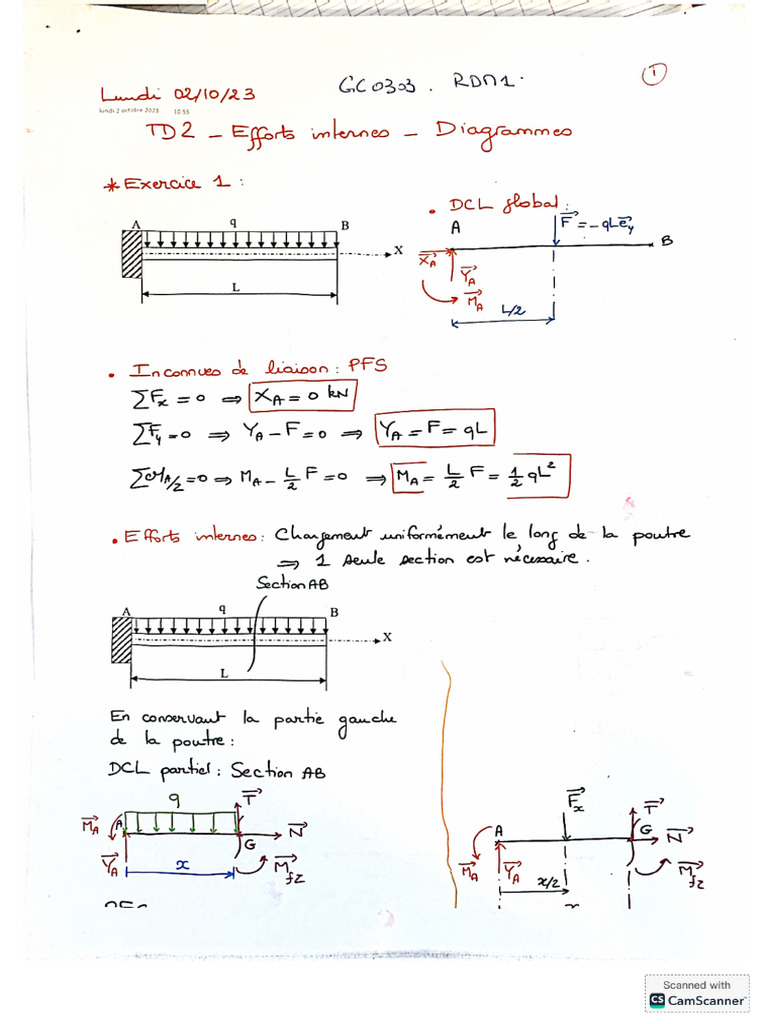 Lundi 02/10/23
GC0303. RDM1.
1
lundi 2 octobre 2023 10:55
TD2 – Efforts internes – Diagrammes
* Exercice 1 :
A q B X L
• DCL global :
A F = -qL ey B
XA YA MA L/2
• Inconnues de liaison : PFS
∑Fx = 0 ⇒ XA = 0 kN
∑Fy = 0 ⇒ YA – F = 0 ⇒ YA = F = qL
∑MA/z = 0 ⇒ MA – L/2 F = 0 ⇒ MA = L/2 F = 1/2 qL²
• Efforts internes : Chargement uniformément le long de la poutre
⇒ 1 seule section est nécessaire.
Section AB
A q B X L
En conservant la partie gauche
de la poutre :
DCL partiel : Section AB
q T MA A N G YA x Mfz
Fx T A G N MA YA x/2 Mfz
Scanned with
CS CamScanner